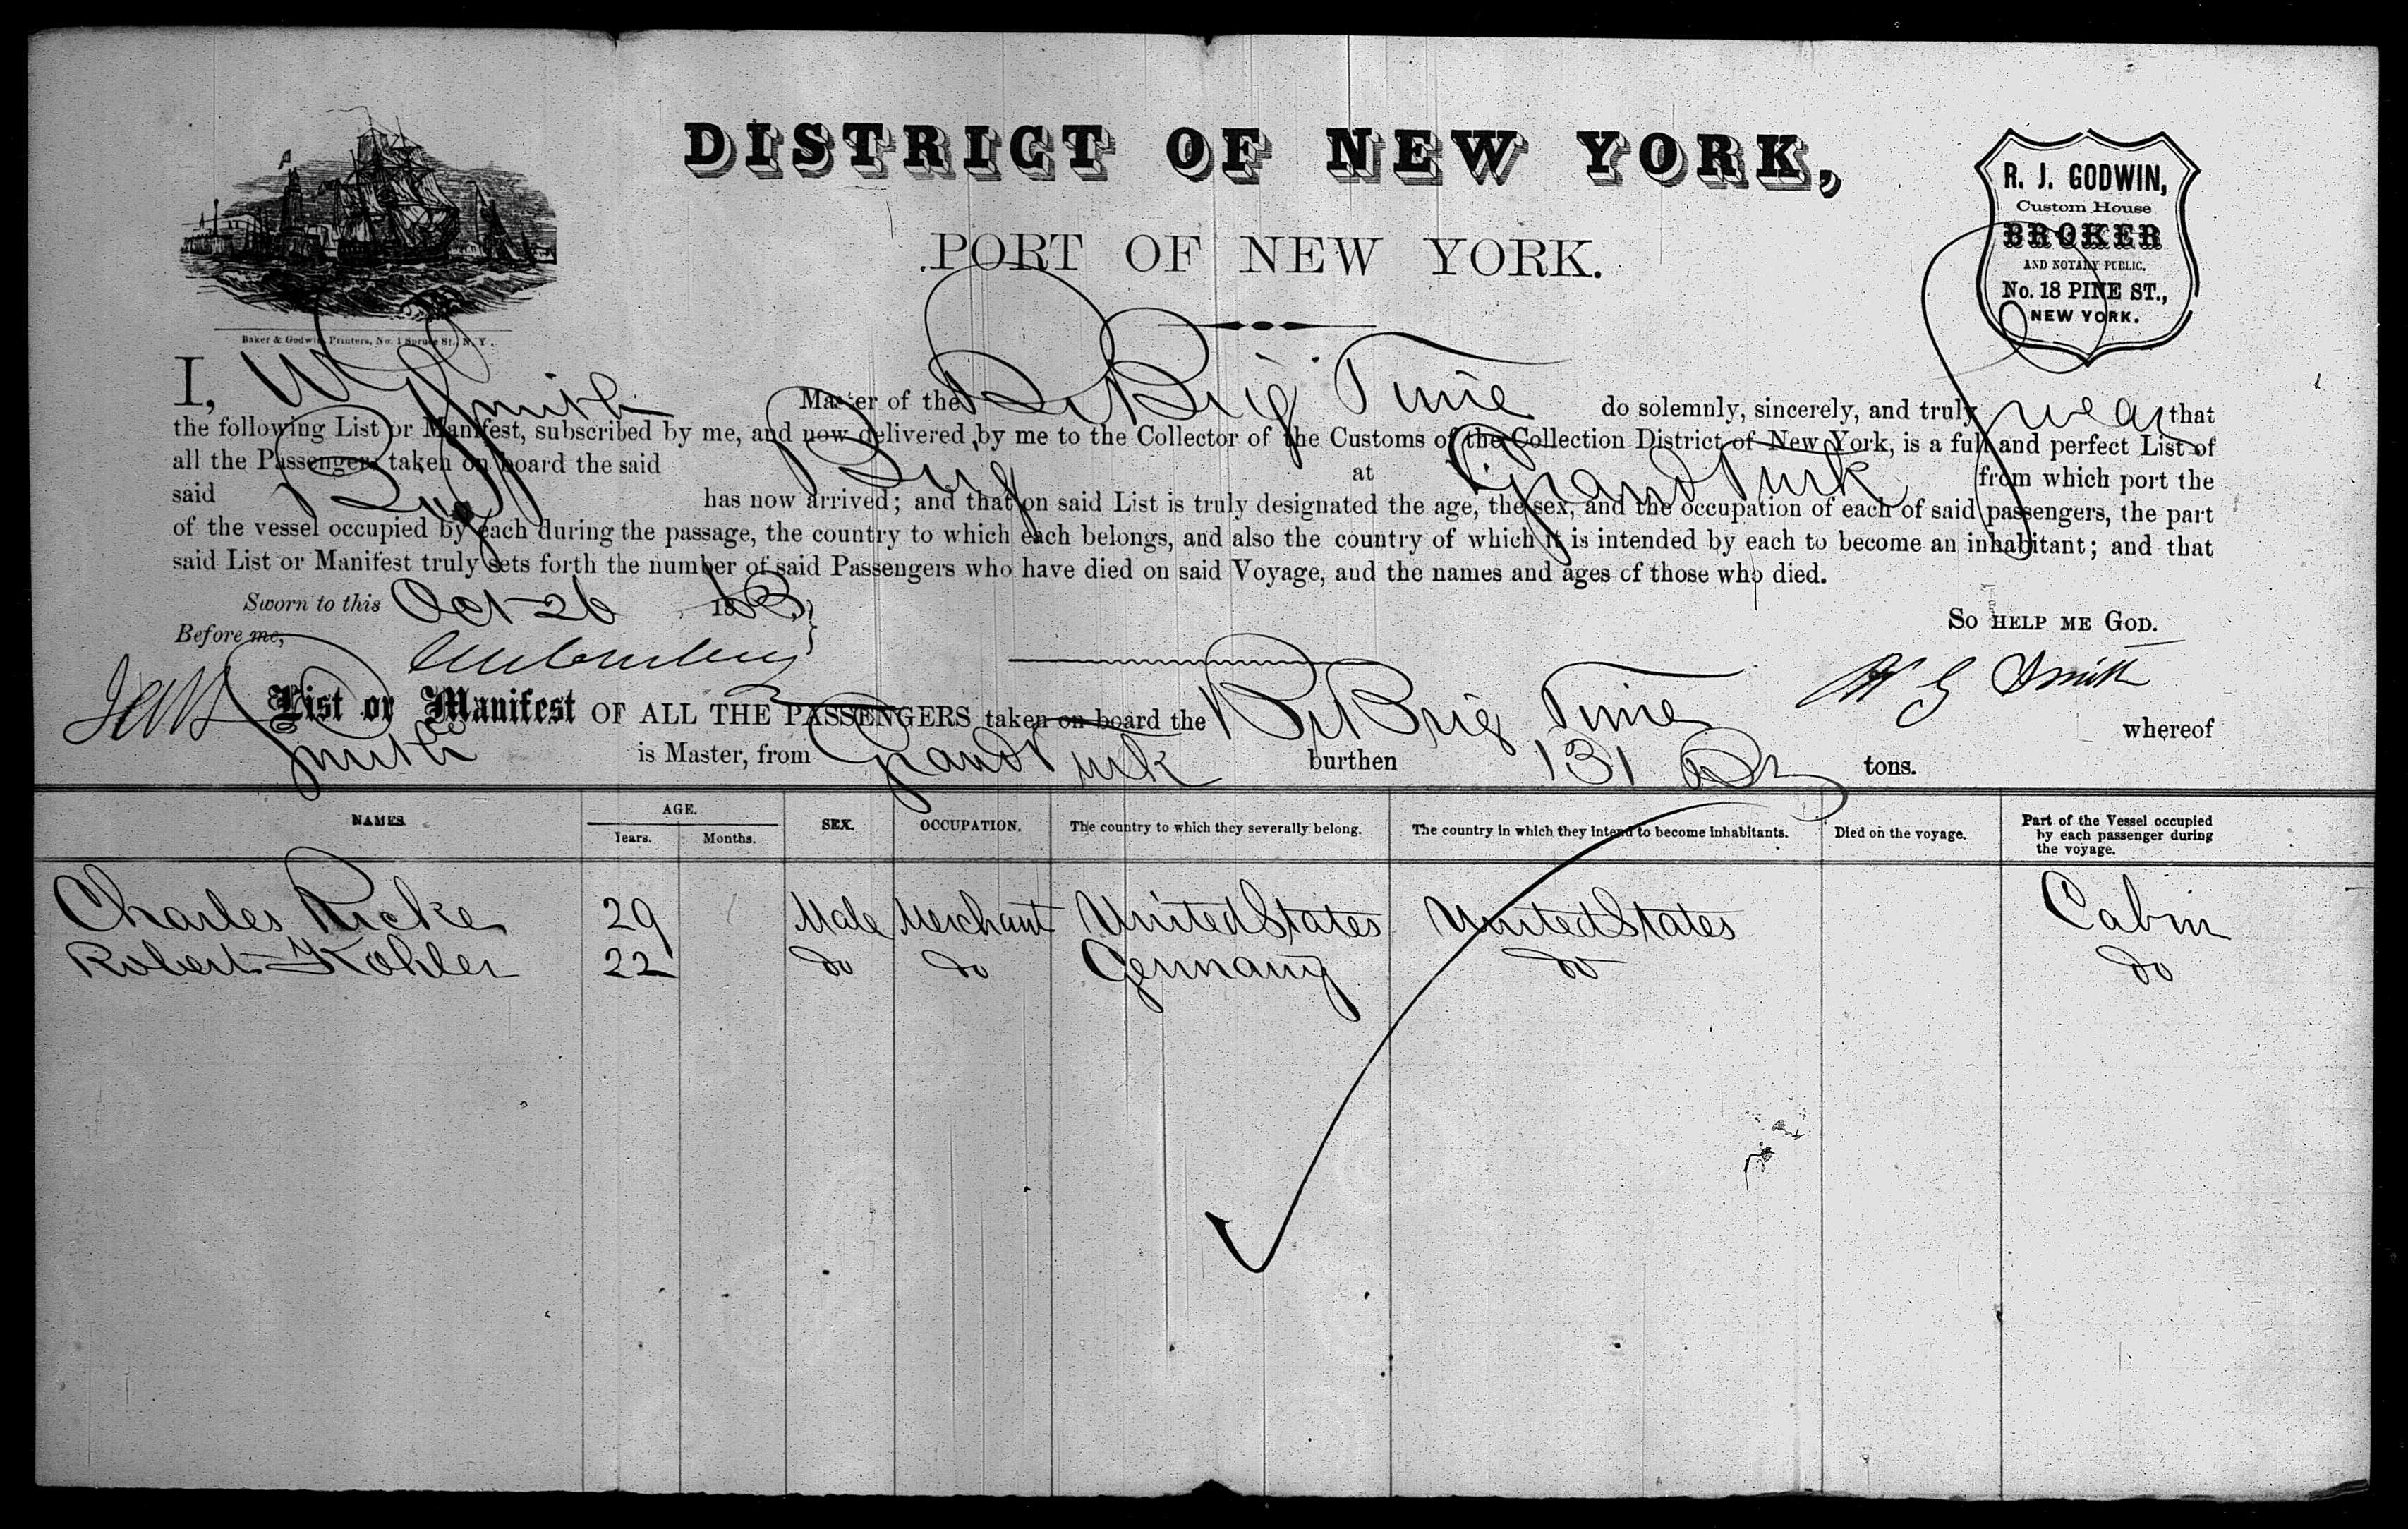 DISTRICT OF NEW YORK,
PORT OF NEW YORK.
R. J. GODWIN,
Custom House
BROKER
AND NOTARY PUBLIC,
No. 18 PINE ST.,
NEW YORK.
Baker & Godwin, Printers, No. 1 Spruce St., N. Y.
I, W G Smith Master of the Br Brig Time do solemnly, sincerely, and truly swear that
the following List or Manifest, subscribed by me, and now delivered by me to the Collector of the Customs of the Collection District of New York, is a full and perfect List of
all the Passengers taken on board the said Brig at Grand Turk from which port the
said Brig has now arrived; and that on said List is truly designated the age, the sex, and the occupation of each of said passengers, the part
of the vessel occupied by each during the passage, the country to which each belongs, and also the country of which it is intended by each to become an inhabitant; and that
said List or Manifest truly sets forth the number of said Passengers who have died on said Voyage, and the names and ages of those who died.
Sworn to this Oct 26 18
So HELP ME GOD.
Before me,
W G Smith
List or Manifest OF ALL THE PASSENGERS taken on board the Br Brig Time whereof
Smith is Master, from Grand Turk burthen 131 tons.
NAMES
AGE.
Years. Months.
SEX.
OCCUPATION.
The country to which they severally belong.
The country in which they intend to become inhabitants.
Died on the voyage.
Part of the Vessel occupied
by each passenger during
the voyage.
Charles Ricke 29 Male Merchant United States United States Cabin
Robert Kohler 22 do do Germany do do